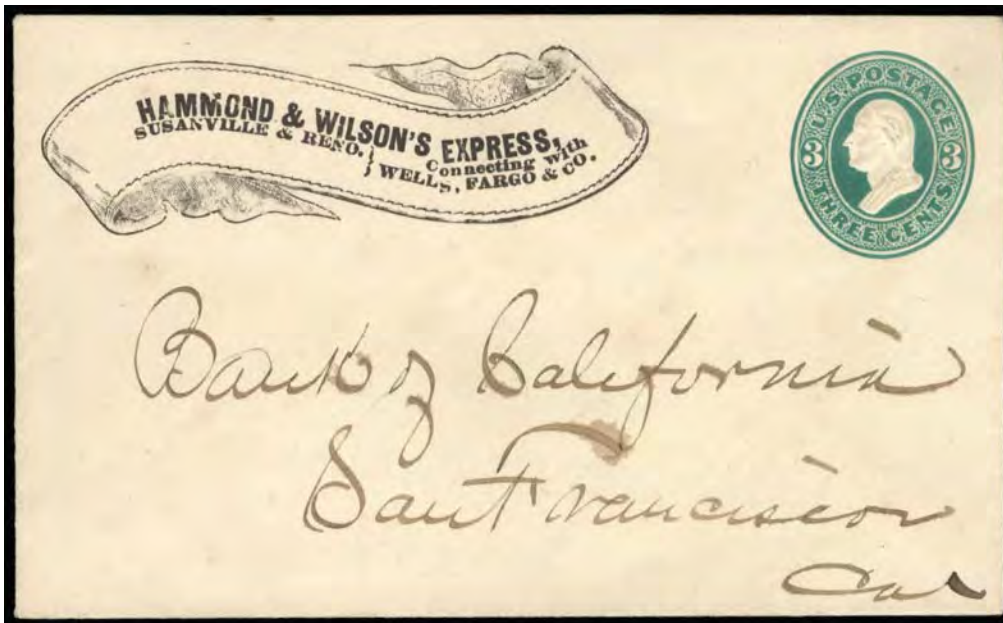 HAMMOND & WILSON'S EXPRESS,
SUSANVILLE & RENO. } Connecting with
WELLS, FARGO & CO.
U.S. POSTAGE
3 3
THREE CENTS
Bank of California
San Francisco
Cal